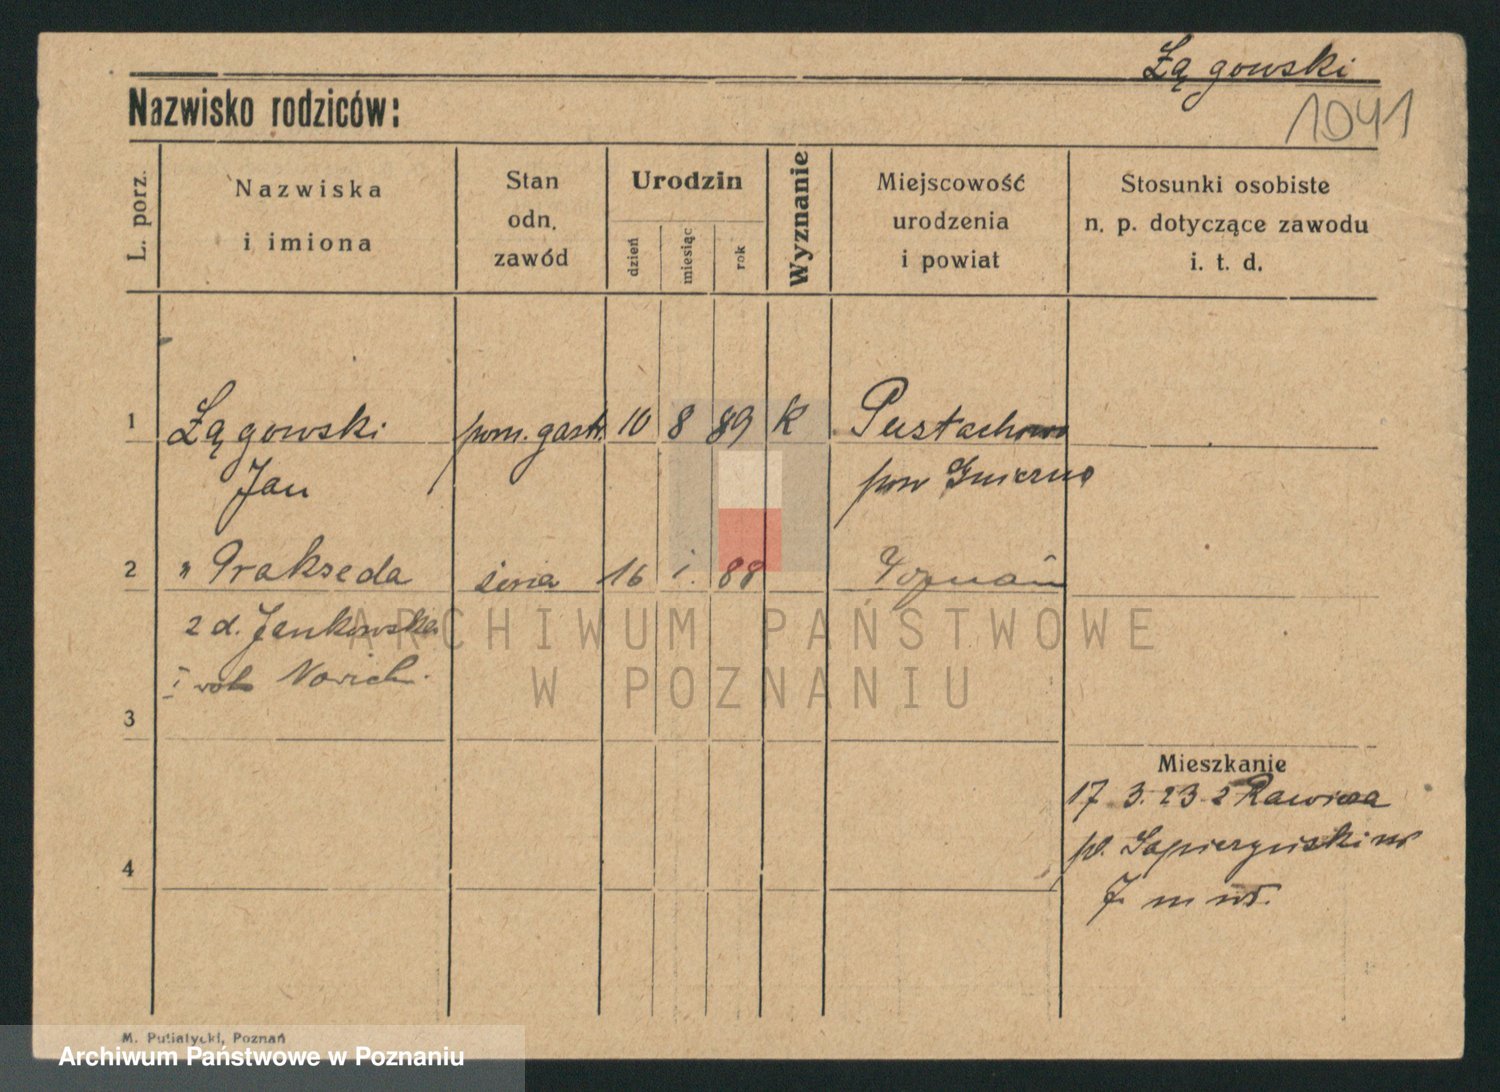 Łągowski
1041
Nazwisko rodziców:
L. porz.
Nazwiska
i imiona
Stan
odn.
zawód
Urodzin
dzień
miesiąc
rok
Wyznanie
Miejscowość
urodzenia
i powiat
Stosunki osobiste
n. p. dotyczące zawodu
i. t. d.
1 Łągowski pom. gastr. 10 8 89 K Pustachowo
Jan pow Gniezno
2 " Prakseda 16 i. 88 Poznań
2 d. Jankowska
I voto Norich.
3
Mieszkanie
17 3. 23 z Rawicza
pl. Sapieżyński
4
ARCHIWUM PAŃSTWOWE
W POZNANIU
M. Putiatycki, Poznań
Archiwum Państwowe w Poznaniu